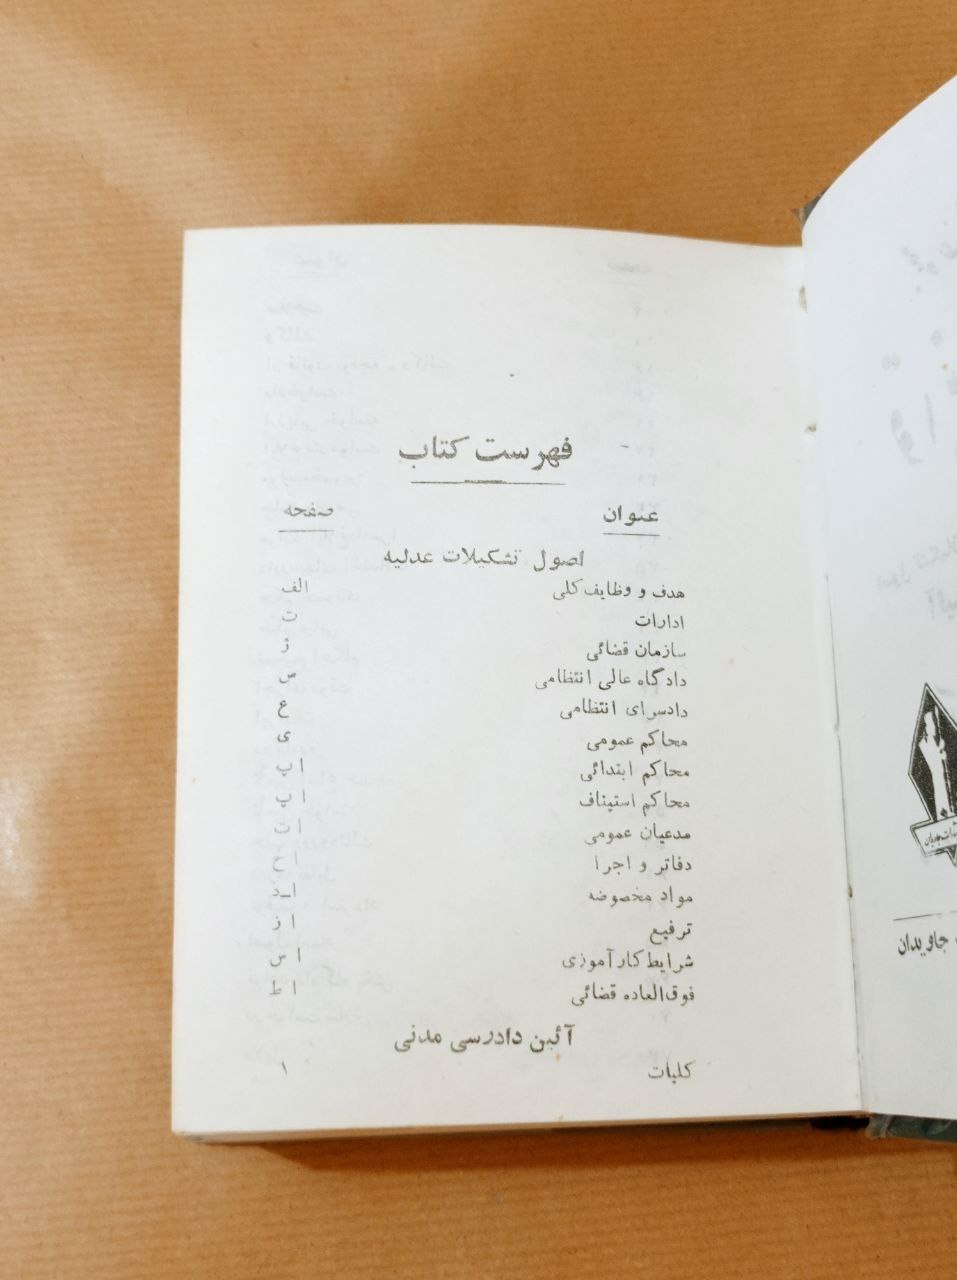 فهرست کتاب
عنوان صفحه
اصول تشکیلات عدلیه
هدف و وظایف کلی الف
ادارات ت
سازمان قضائی ژ
دادگاه عالی انتظامی ص
دادسرای انتظامی ع
محاکم عمومی ی
محاکم ابتدائی ا پ
محاکم استیناف ا پ
مدعیان عمومی ا ت
دفاتر و اجرا ا ح
مواد مخصوصه ا د
ترفیع ا ز
شرایط کارآموزی ا س
فوق‌العاده قضائی ا ط
آئین دادرسی مدنی
کلیات ۱
جاویدان